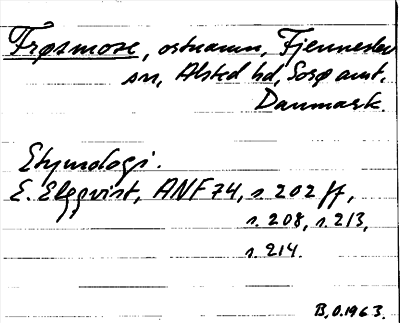 Frøsmose, ortnamn, Fjenneslev
sn, Alsted hd, Sorø amt.
Danmark.
Etymologi.
E. Elgqvist, ANF 74, s. 202 ff,
s. 208, s. 213,
s. 214.
B.O. 1963.